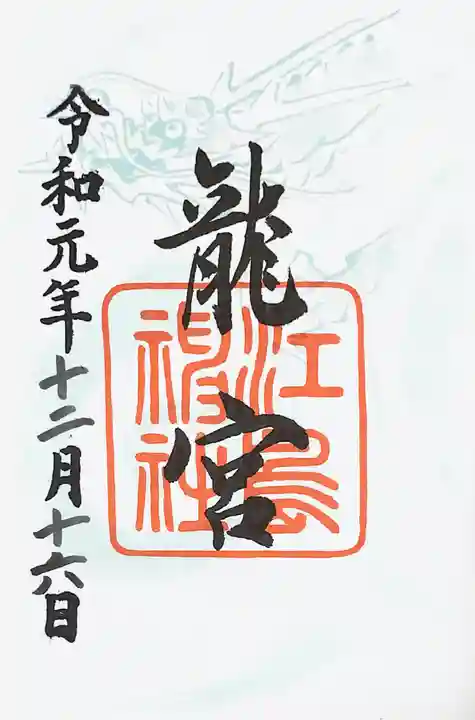 龍宮
江島神社
令和元年十二月十六日